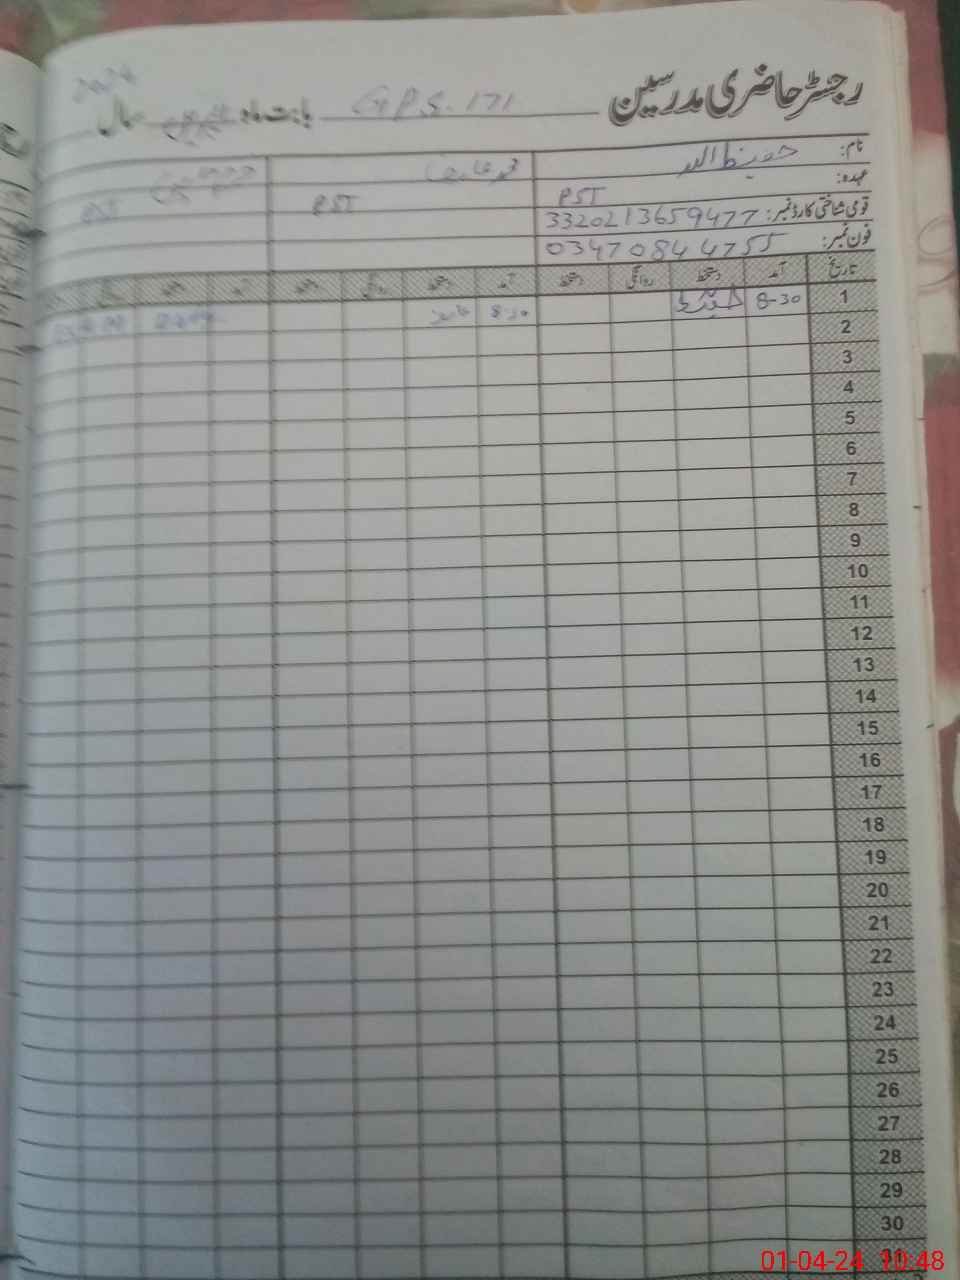 رجسٹر حاضری مدرسین G.P.S. 171 بابت ماہ اپریل سال 2024
نام: حفیظ اللہ
عہدہ: PST PST PST
قومی شناختی کارڈ نمبر: 3320213659477
فون نمبر: 03470844755
تاریخ آمد دستخط روانگی دستخط آمد دستخط روانگی دستخط آمد دستخط روانگی
1 8-30 حفیظ 8-30
2
3
4
5
6
7
8
9
10
11
12
13
14
15
16
17
18
19
20
21
22
23
24
25
26
27
28
29
30
31
01-04-24 10:48